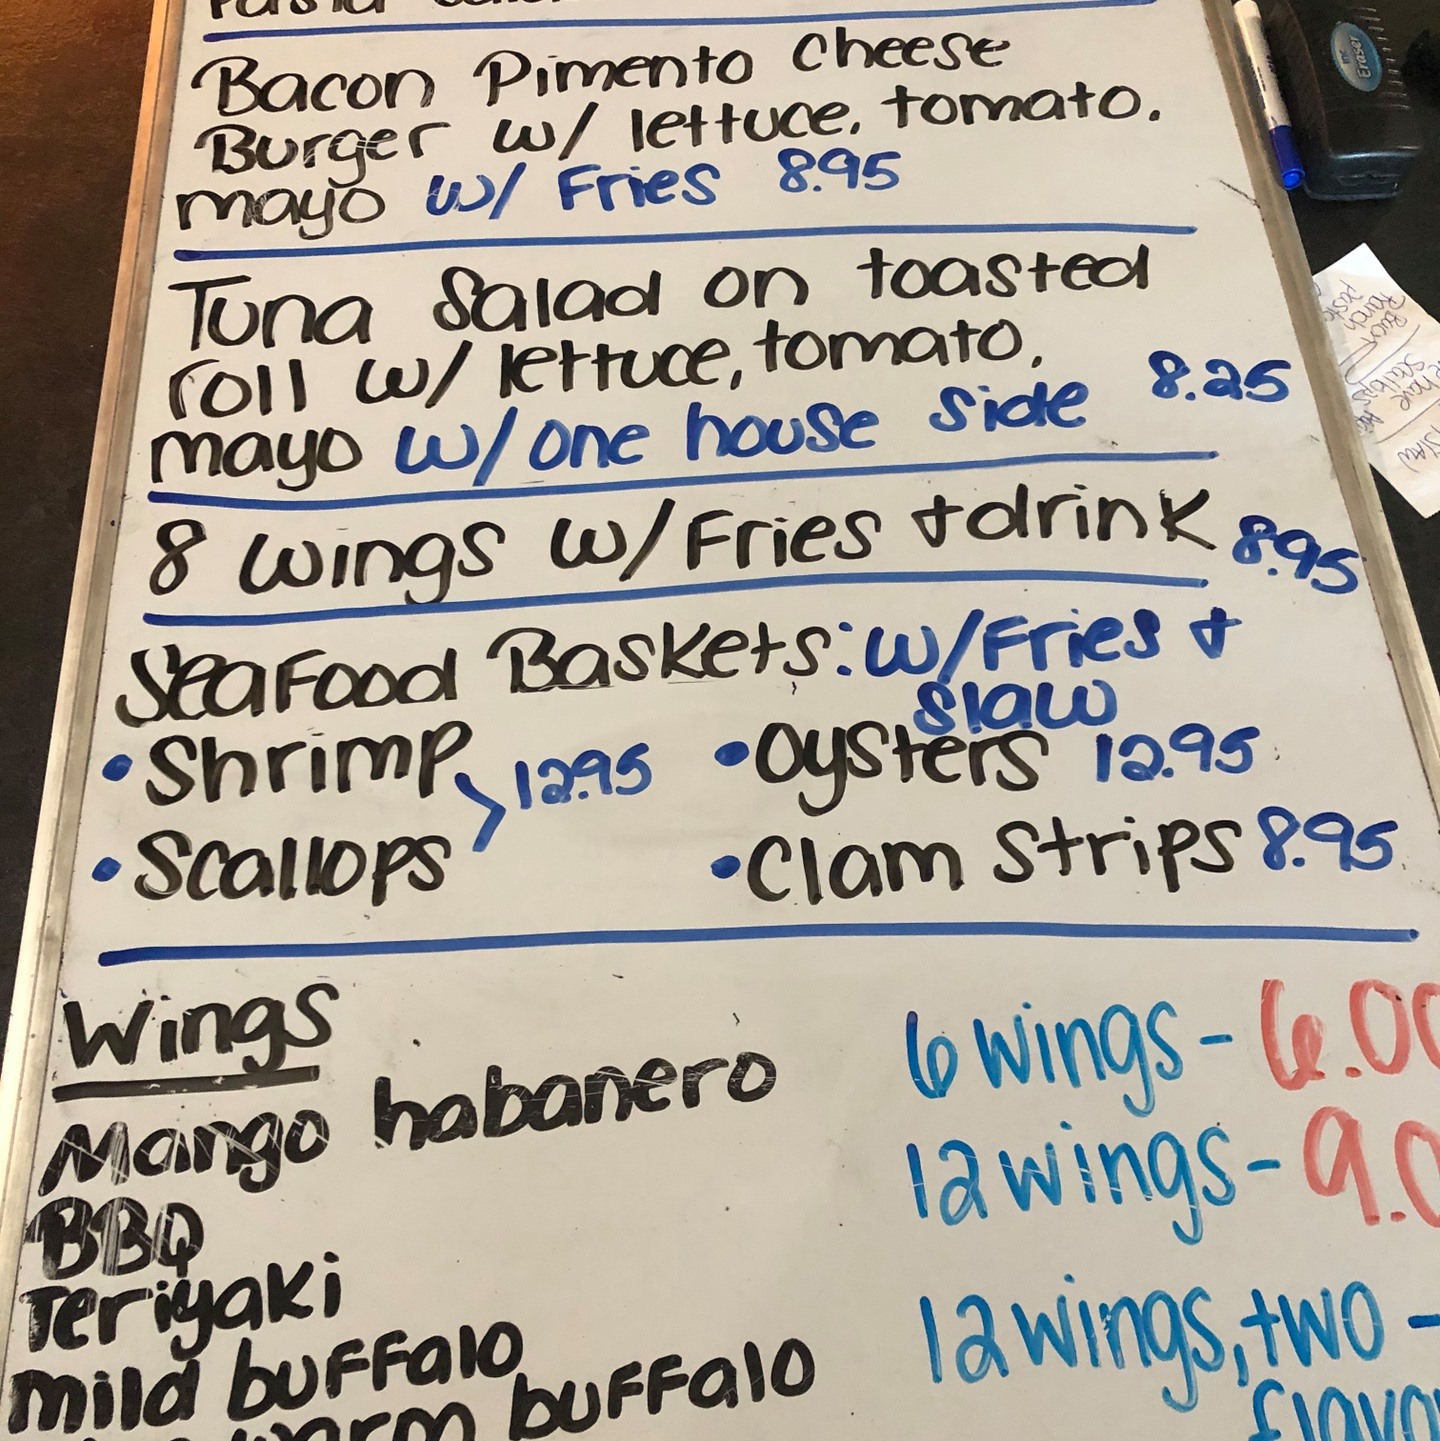 Pasta
Bacon Pimento Cheese
Burger w/ lettuce, tomato.
mayo w/ Fries 8.95
Tuna Salad on toasted
roll w/ lettuce, tomato,
mayo w/ one house side 8.25
8 wings w/ Fries + drink 8.95
Seafood Baskets: w/ Fries +
slaw
• Shrimp
• Scallops
12.95
• Oysters 12.95
• Clam Strips 8.95
Wings
Mango habanero
BBQ
Teriyaki
mild buffalo
warm buffalo
6 wings - 6.00
12 wings - 9.0
12 wings, two -
flavo
Eraser
Bacon
Ranch
Scallops
slaw